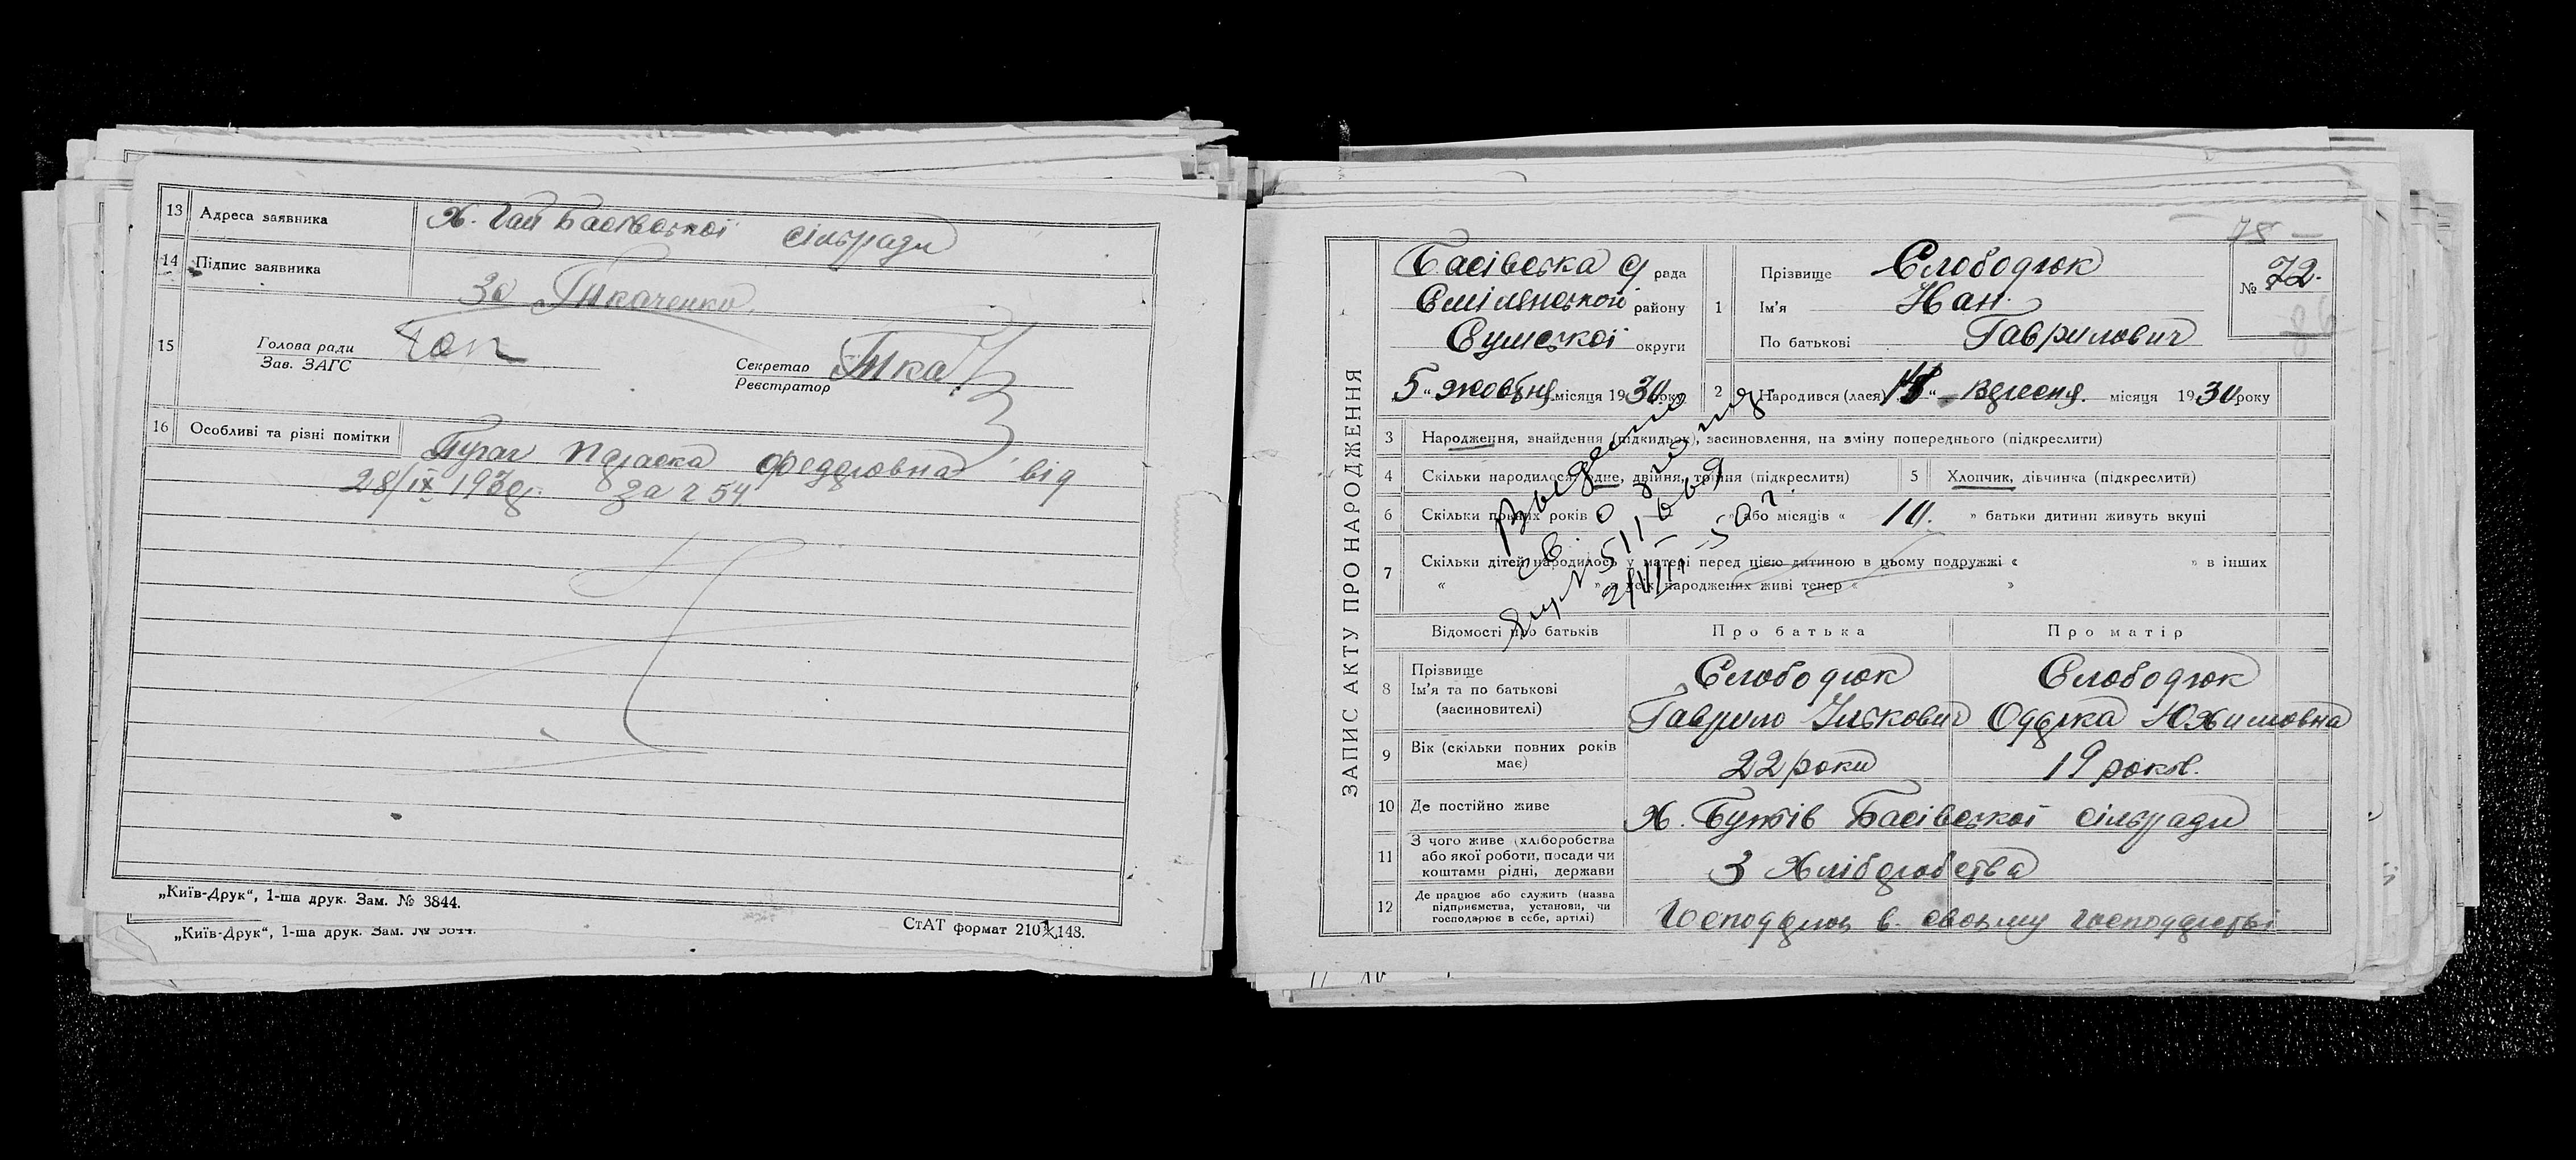 13 Адреса заявника Х. Гай Басівської сільради
14 Підпис заявника За Ткаченко
15 Голова ради
Зав. ЗАГС
Секретар
Реєстратор Тка
16 Особливі та різні помітки
від
28/IX 1930р. за г 54
„Київ-Друк“, 1-ша друк. Зам. № 3844.
„Київ-Друк“, 1-ша друк. Зам. № 3844.
СтАТ формат 210×148.
78
ЗАПИС АКТУ ПРО НАРОДЖЕННЯ
Басівська С/ рада
району
Сумської округи
5 „ жовтня місяця 1930 року
1 Прізвище Слободюк
Ім'я Иван
По батькові Гаврилович
№ 72.
2 Народився (лася) „ Вересня. місяця 1930 року
3 Народження, знайдення (підкидьок), засиновлення, на зміну попереднього (підкреслити)
4 Скільки народилося: одне, двійня, трійня (підкреслити)
5 Хлопчик, дівчинка (підкреслити)
6 Скільки повних років « 0 » або місяців « 10. » батьки дитини живуть вкупі
7 Скільки дітей народилось у матері перед цією дитиною в цьому подружжі « » в інших
« » з усіх народжених живі тепер « »
Відомості про батьків Про батька Про матір
8 Прізвище Слободюк Слободюк
Ім'я та по батькові
(засновителі) Гаврило Ількович Юхимовна
9 Вік (скільки повних років має) 22 роки 19 років.
10 Де постійно живе Х. Басівської сільради
11 З чого живе (хліборобства
або якої роботи, посади чи
коштами рідні, держави З Хліборобства
12 Де працює або служить (назва
підприємства, установи, чи
господарює в себе, артілі) в своєму господарстві